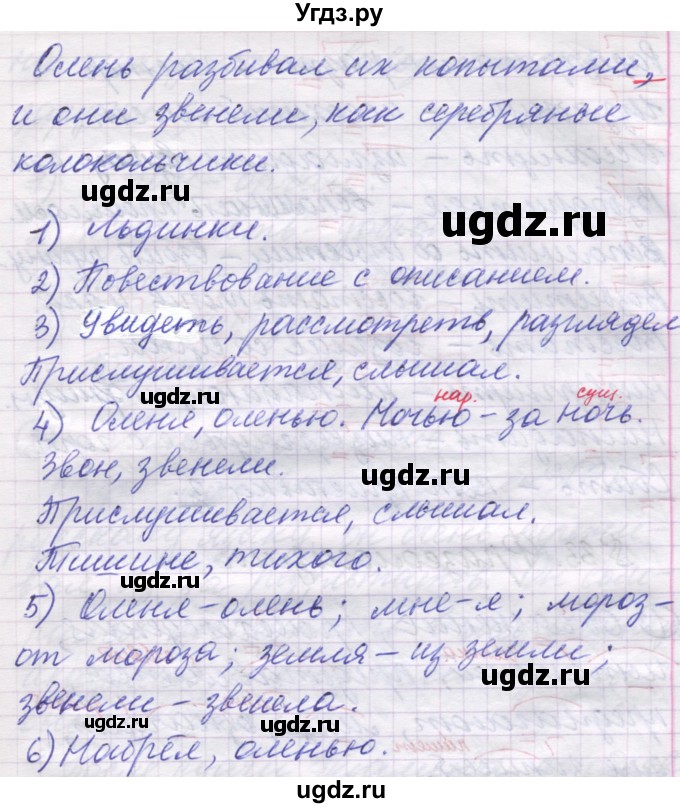 Угдз.ру
Олень разбивал их копытами,
и они звенели, как серебряные
колокольчики.
ugdz.ru
ugdz.ru
1) Льдинки.
2) Повествование с описанием.
ugdz.ru
3) Увидеть, рассмотреть, разглядел
Прислушивается, слышал.
ugdz.ru
нар. сущ.
4) Оленя, оленью. Ночью - за ночь.
ugdz.ru
Звон, звенели.
ugdz.ru
Прислушивается, слышал.
Тишине, тихого.
ugdz.ru
ugdz.ru
5) Оленя - олень; мне - я; мороз -
от мороза; земля - из земли;
звенели - звенела.
ugdz.ru
ugdz.ru
6) Набрёл, оленью.
ugdz.ru
ugdz.ru